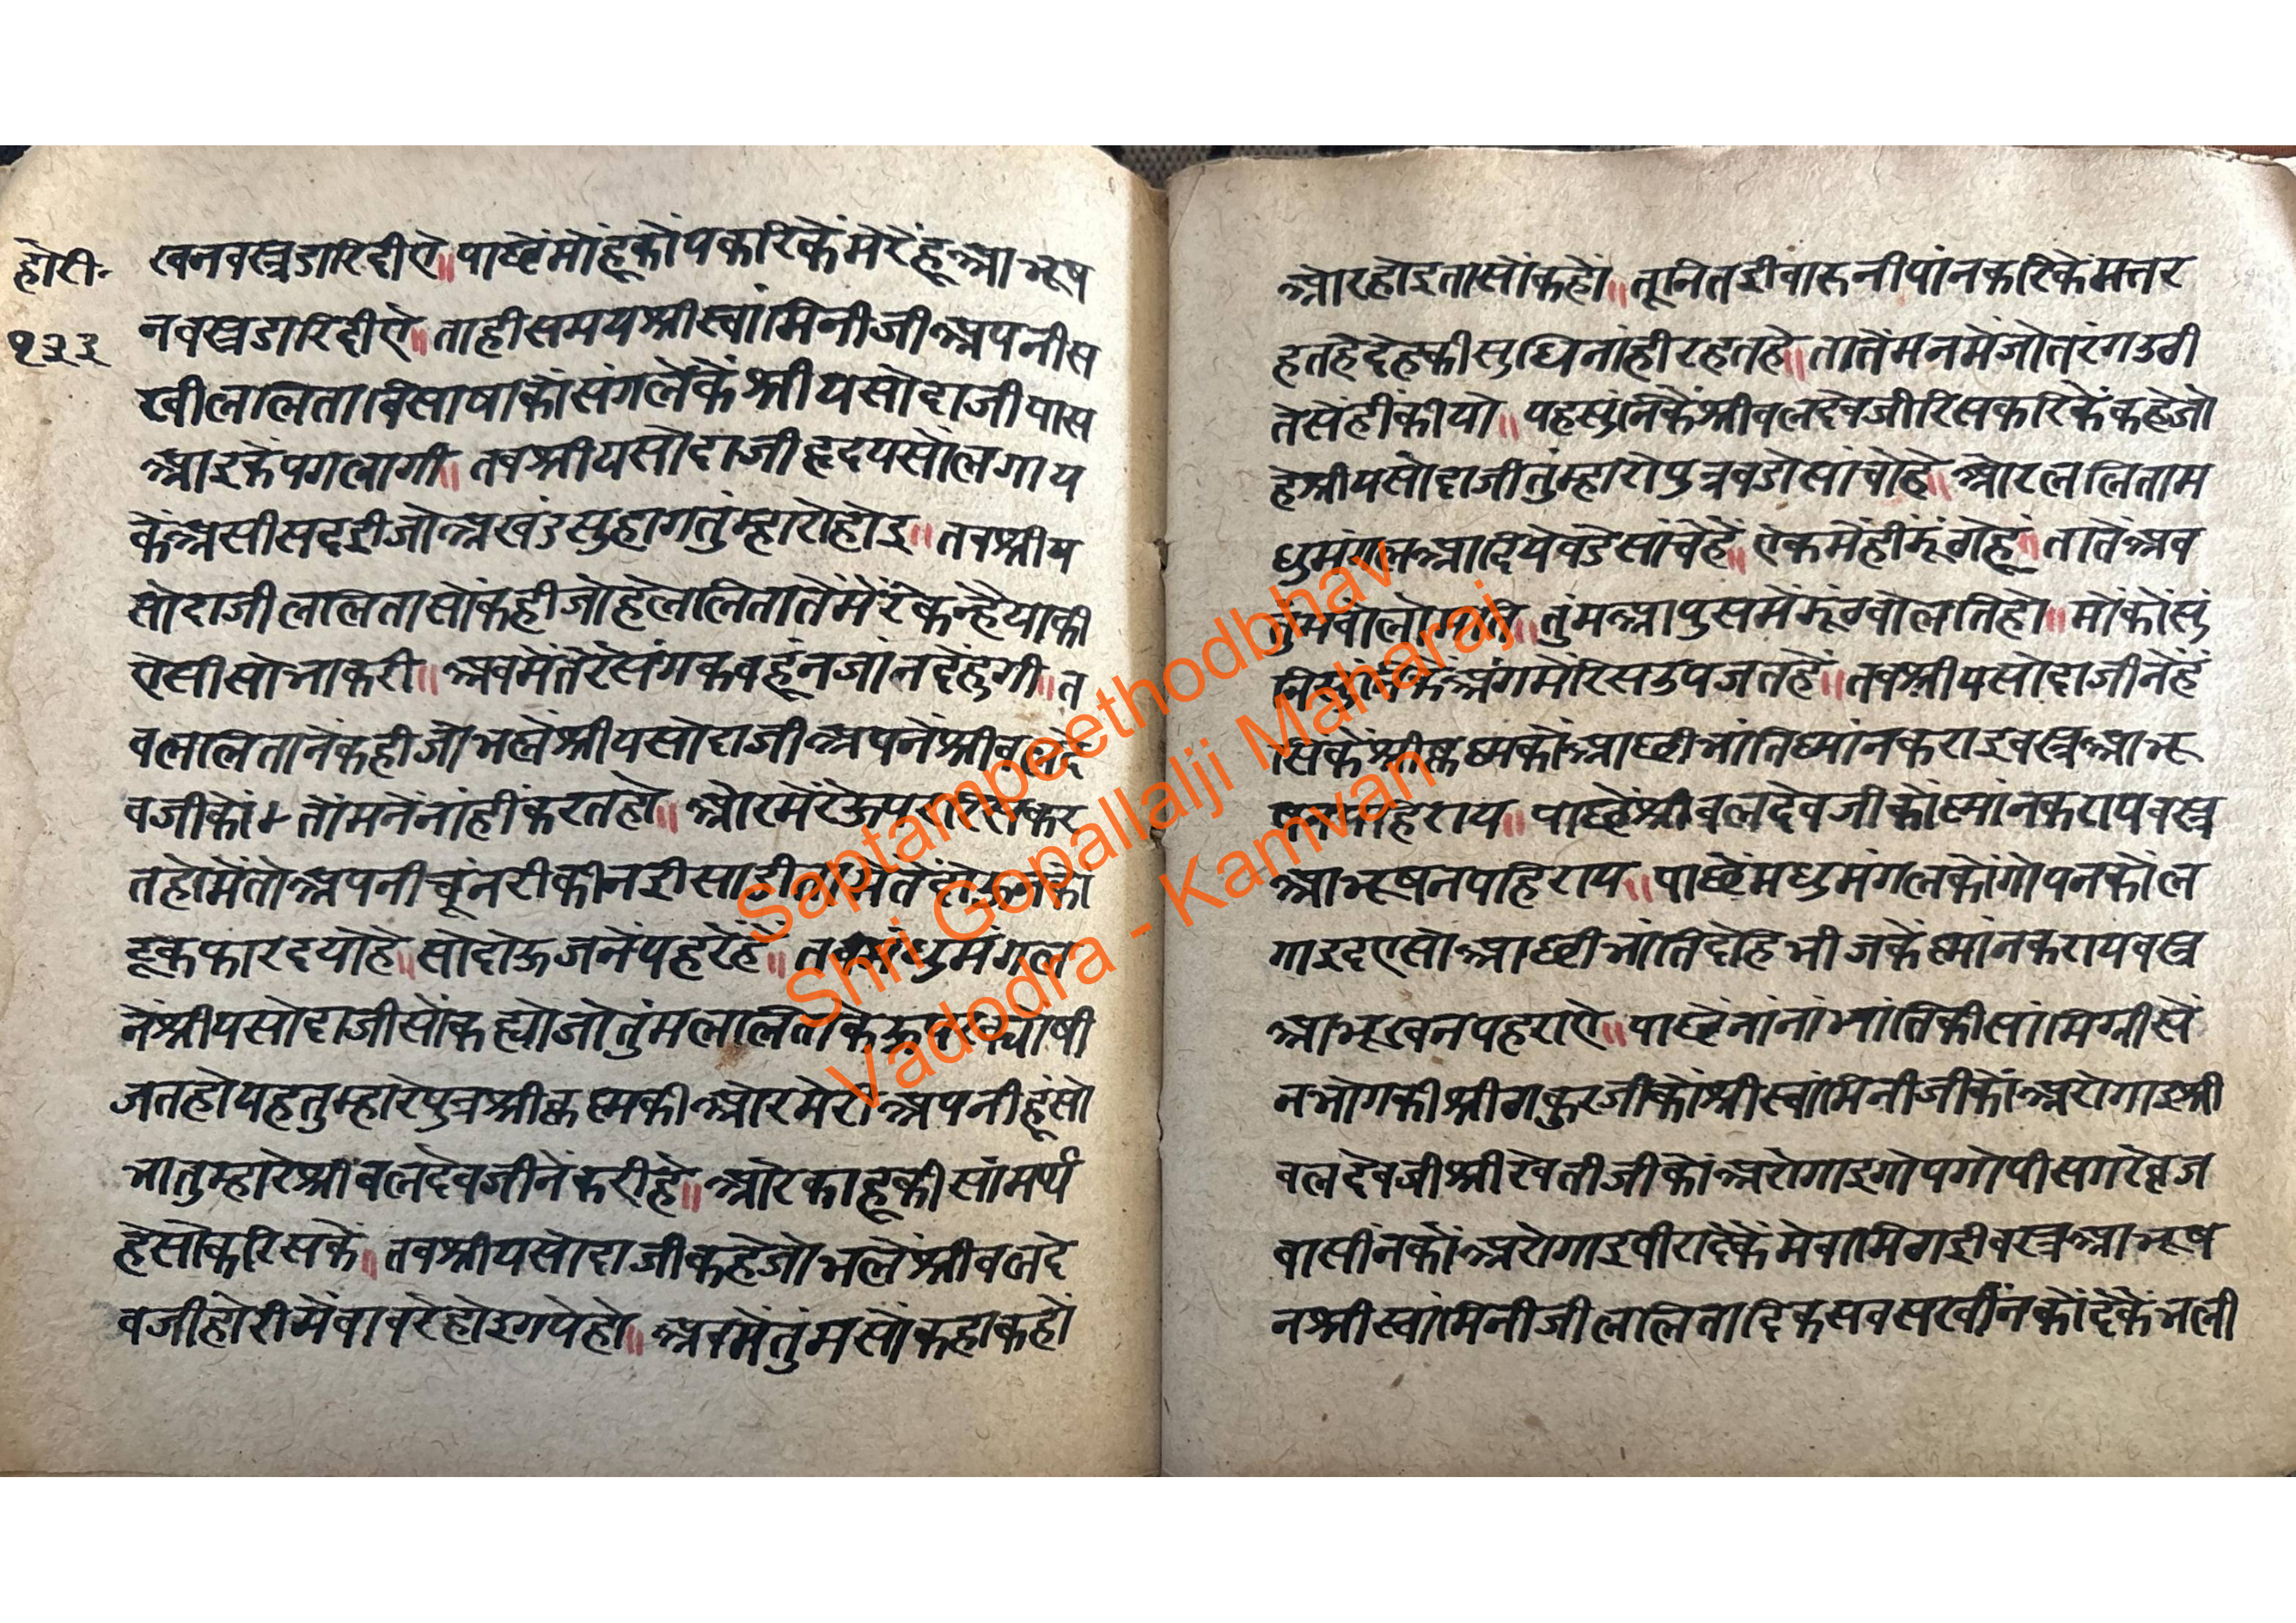 होरी॰
१३३
खनवस्त्रडारिदीऐ॥पाछेंमोहूंकोंपकरिकेंमेरेंहूआभूष
नवस्त्रडारिदीऐ॥ताहीसमयश्रीस्वांमिनीजीअपनीस
खीललिताविसाषाकोंसंगलेकेंश्रीयसोदाजीपास
आइकेंपगलागी॥तबश्रीयसोदाजीहृदयसोंलगाय
केंअसीसदईजोअखंडसुहागतुंम्हारोहोइ॥तबश्रीय
सोदाजीललितासोंकहीजोहेललितातेंमेरेंकन्हैयाकी
ऐसीसोभाकरी॥अबमेंतेरेंसंगकबहूंनजांनदेहुगी॥त
बललितानेंकहीजोभलेंश्रीयसोदाजीअपनेंश्रीबलदे
वजीकों तोंमनेंनांहींकरतहो॥ओरमेरेंऊपर
तहोमेंतोअपनीचूंनरीकीनईसाडी
टूकफारदयोहे॥सोदोऊजनेंपहरेंहें॥तबमधुमंगल
नेंश्रीयसोदाजीसोंकह्योजोतुंमललिताके
जतहोयहतुम्हारेपुत्रश्रीकृष्णकीओरमेरीअपनीहूंसो
भातुम्हारेश्रीबलदेवजीनेंकरीहे॥ओरकाहूकीसांमर्थ्य
हेसोकरिसकें॥तबश्रीयसोदाजीकहेजोभलेंश्रीबलदे
वजीहोरीमेंबावरेहोइगयेहो॥अबमेंतुंमसोंकहाकहों
ओरहोइतासोंकहों॥तूनितईवारुनीपांनकरिकेंमत्तर
हतहेदेहकीसुधिनांहीरहतहे॥तातेंमनमेंजोतरंगउठी
तेसेंहींकीयो॥यहसुंनिकेंश्रीबलदेवजीरिसकरिकेंकहेजो
हेश्रीयसोदाजीतुंम्हारोपुत्रबडोसांचोहे॥ओरललिताम
धुमंगलआदियेबडेसांचेहें॥ऐकमेंहींझूंठोहूं॥तातेंअब
तुंमआपुसमेंझूंठबोलतिहो॥मोंकोंसुं
अंगमेंरिसउपजतहें॥तबश्रीयसोदाजीनेंहं
सिकेंश्रीकृष्णकोंआछीभांतिष्नांनकराइवस्त्रआभू
पहिराय॥पाछेंश्रीबलदेवजीकोंष्नांनकरायवस्त्र
आभूषनपहिराय॥पाछेंमधुमंगलकोंगोपनकोंल
गाइदएसोआछीभांतिदेहिमीजकेंष्नांनकरायवस्त्र
आभूखनपहराऐ॥पाछेंनांनांभांतिकीसांमिग्रीसें
नभोगकीश्रीठाकुरजीकोंश्रीस्वांमिनीजीकोंअरोगाइश्री
बलदेवजीश्रीरेवतीजीकोंअरोगाइगोपगोपीसगरेब्रज
वासींनकोंअरोगाइबीरादेकेंमेवामिठाईवस्त्रआभूष
नश्रीस्वांमिनीजीललितादिकसबसखींनकोंदेकेंभली